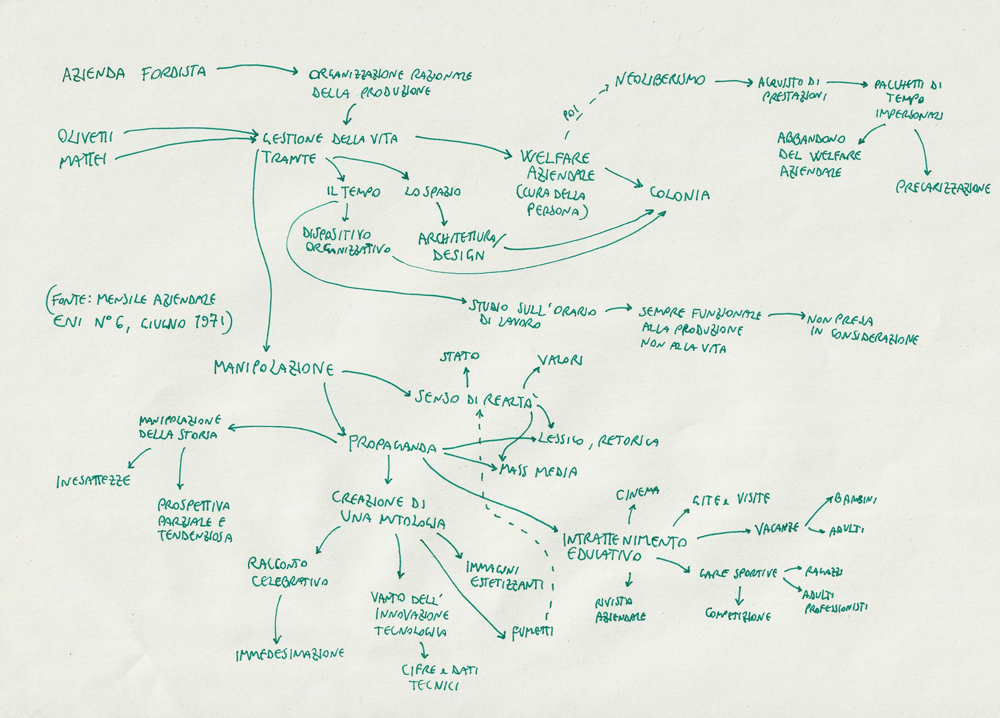 AZIENDA FORDISTA
ORGANIZZAZIONE RAZIONALE
DELLA PRODUZIONE
NEOLIBERISMO
ACQUISTO DI
PRESTAZIONI
PACCHETTI DI
TEMPO
IMPERSONALI
POI
ABBANDONO
DEL WELFARE
AZIENDALE
PRECARIZZAZIONE
OLIVETTI
MATTEI
GESTIONE DELLA VITA
TRAMITE
WELFARE
AZIENDALE
(CURA DELLA
PERSONA)
COLONIA
IL TEMPO
LO SPAZIO
DISPOSITIVO
ORGANIZZATIVO
ARCHITETTURA/
DESIGN
(FONTE: MENSILE AZIENDALE
ENI N°6, GIUGNO 1971)
STUDIO SULL'ORARIO
DI LAVORO
SEMPRE FUNZIONALE
ALLA PRODUZIONE
NON ALLA VITA
NON PRESA
IN CONSIDERAZIONE
MANIPOLAZIONE
STATO
VALORI
SENSO DI REALTA'
MANIPOLAZIONE
DELLA STORIA
PROPAGANDA
LESSICO, RETORICA
MASS MEDIA
INESATTEZZE
PROSPETTIVA
PARZIALE E
TENDENZIOSA
CREAZIONE DI
UNA MITOLOGIA
CINEMA
GITE e VISITE
VACANZE
BAMBINI
ADULTI
INTRATTENIMENTO
EDUCATIVO
RACCONTO
CELEBRATIVO
IMMAGINI
ESTETIZZANTI
GARE SPORTIVE
RAGAZZI
ADULTI
PROFESSIONISTI
COMPETIZIONE
RIVISTA
AZIENDALE
VANTO DELL'
INNOVAZIONE
TECNOLOGICA
FUMETTI
IMMEDESIMAZIONE
CIFRE e DATI
TECNICI